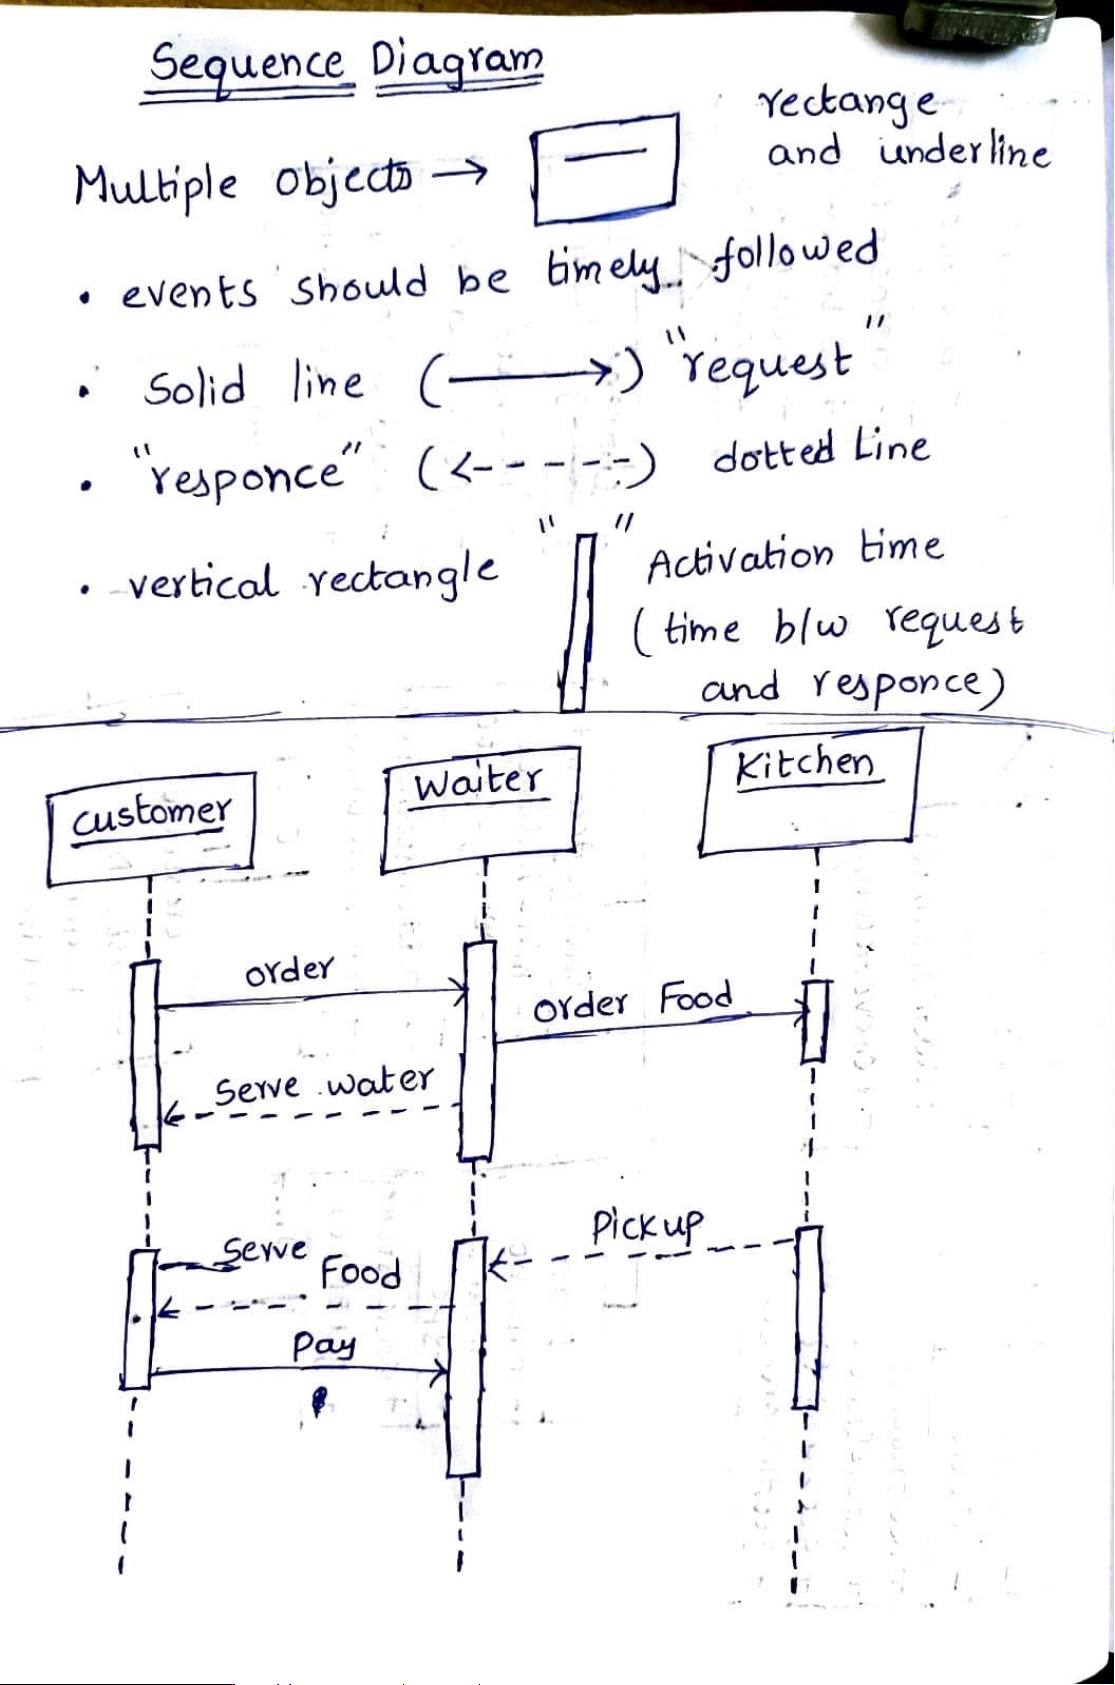 Sequence Diagram
rectange
Multiple objects → and underline
• events should be timely followed
• Solid line (→) "request"
• "responce" (<- - - - - -) dotted Line
• vertical rectangle " " Activation time
(time b/w request
and responce)
customer Waiter Kitchen
order
order Food
Serve water
Pickup
Serve
Food
Pay